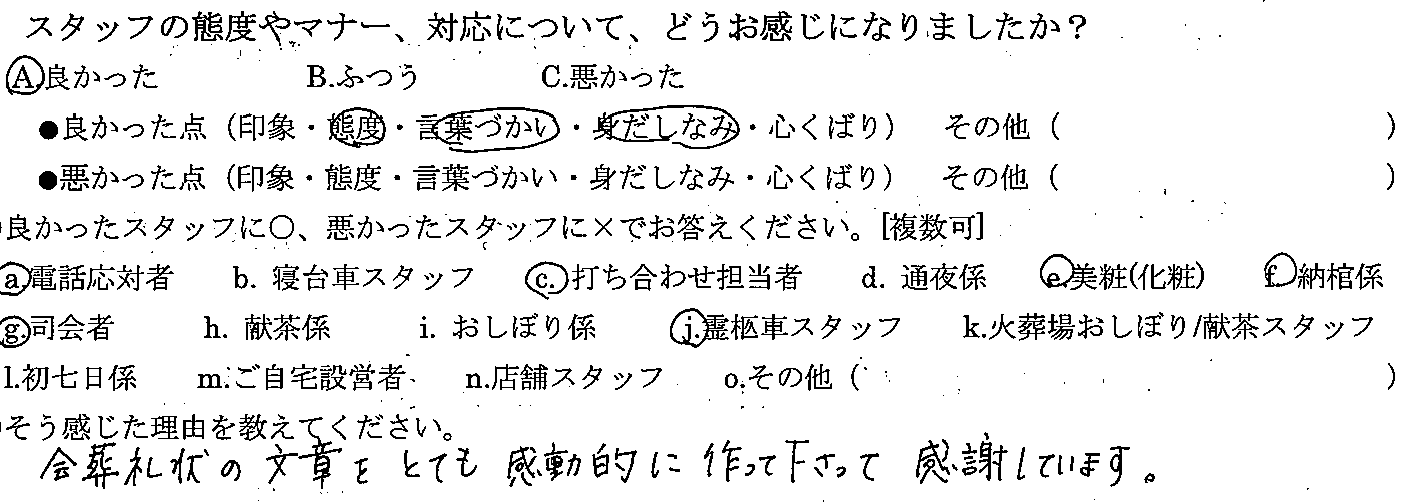 スタッフの態度やマナー、対応について、どうお感じになりましたか？
A.良かった B.ふつう C.悪かった
●良かった点（印象・態度・言葉づかい・身だしなみ・心くばり） その他（ ）
●悪かった点（印象・態度・言葉づかい・身だしなみ・心くばり） その他（ ）
良かったスタッフに〇、悪かったスタッフに×でお答えください。[複数可]
a.電話応対者 b. 寝台車スタッフ c.打ち合わせ担当者 d. 通夜係 e.美粧(化粧) f.納棺係
g.司会者 h. 献茶係 i. おしぼり係 j.霊柩車スタッフ k.火葬場おしぼり/献茶スタッフ
l.初七日係 m.ご自宅設営者 n.店舗スタッフ o.その他（ ）
そう感じた理由を教えてください。
会葬礼状の文章をとても感動的に作って下さって感謝しています。